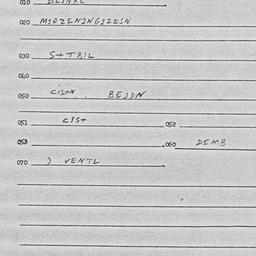 010
020 MIRZENINGIZEIN
030 S+TRIL
040
050 CISTN BEJDN
051 CIST 052
053 .060 DEMB
070 ) VENTL